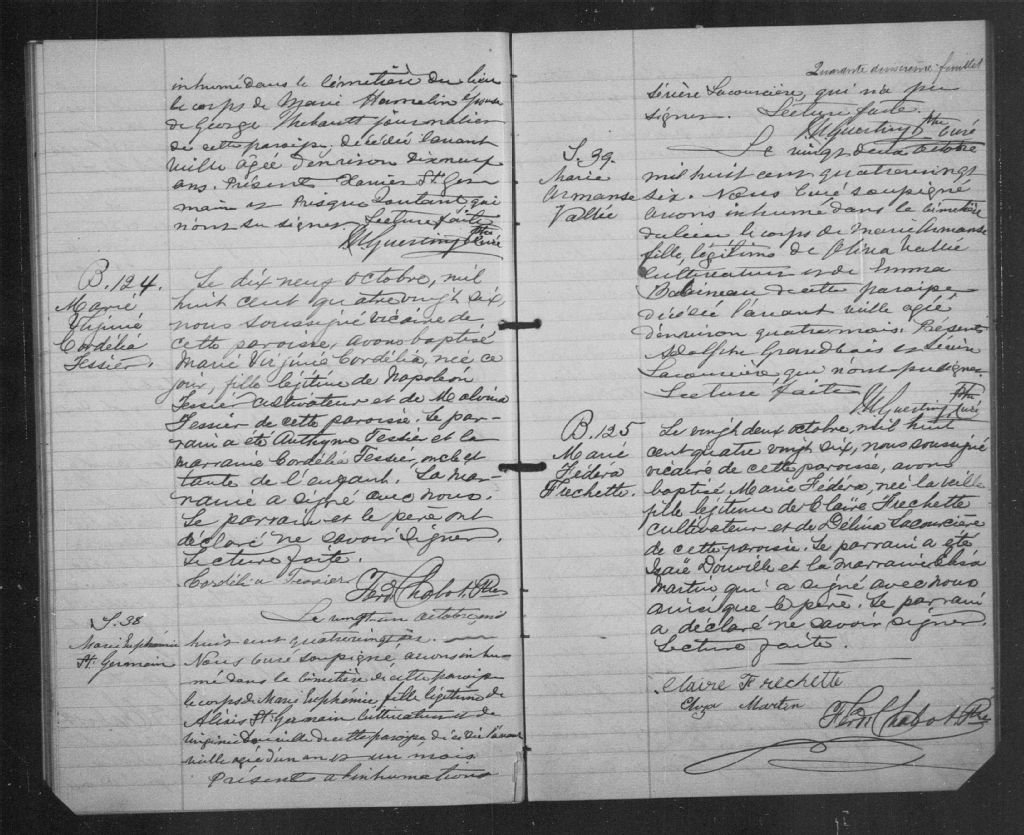 inhumé dans le Cimetière du lieu
le corps de Marie Hamelin épouse
de George Thibault journalier
de cette paroisse, décédée l'avant
veille agée d'environ dixneuf
ans. Présents Xavier St. Ger
main et qui
n'ont su signer. Lecture faite
Ptre Curé
B. 124.
Marie
Virginie
Cordélia
Tessier.
Le dix neuf octobre, mil
huit cent quatre vingt six,
nous soussigné vicaire de
cette paroisse, avons baptisé
Marie Virginie Cordélia, née ce
jour, fille légitime de Napoléon
Tessier cultivateur et de Malvina
Tessier de cette paroisse. Le par-
rain a été Tessier et la
marraine Cordélia Tessier, oncle et
tante de l'enfant. La mar-
raine a signé avec nous.
Le parrain et le père ont
déclaré ne savoir signer.
Lecture faite.
Cordélia Tessier
Ferd. Chabot. Ptre
S. 38
Marie Euphémie
St. Germain
Le vingt un octobre mil
huit cent quatrevingt six.
Nous Curé soussigné, avons inhu-
mé dans le Cimetière de cette paroisse
le corps de Marie Euphémie, fille légitime de
St. Germain Cultivateur et de
Virginie Douville de cette paroisse, décédée l'avant
veille agée d'un an et un mois
Présents a l'inhumations
Quarante deuxieme feuillet
Lacourcière, qui n'a pu
signer. Lecture faite.
Ptre Curé
S. 39.
Marie
Armanse
Vallée
Le vingt deux octobre
mil huit cent quatrevingt
six. Nous Curé soussigné
avons inhumé dans le Cimetière
du lieu le corps de Marie Armanse
fille, légitime de Olina Vallée
Cultivateur et de Emma
Babineau de cette paroisse
décédée l'avant veille agée
d'environ quatre mois. Présents
Adolphe Grandbois et
Lacourcière qui n'ont pu signer.
Lecture faite
Ptre Curé
B. 125
Marie
Fédéra
Frechette.
Le vingt deux octobre, mil huit
cent quatre vingt six, nous soussigné
vicaire de cette paroisse, avons
baptisé Marie Fédéra, née la veille
fille légitime de Claïre Frechette
cultivateur et de Délina Lacourcière
de cette paroisse. Le parrain a été
Isaïe Douville et la marraine Elisa
Martin qui a signé avec nous
ainsi que le père. Le parrain
a déclaré ne savoir signer.
Lecture faite.
Claire Frechette
Eliza Martin
Ferd. Chabot. Ptre